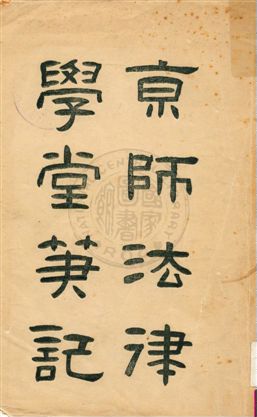 京師法律
學堂筆記